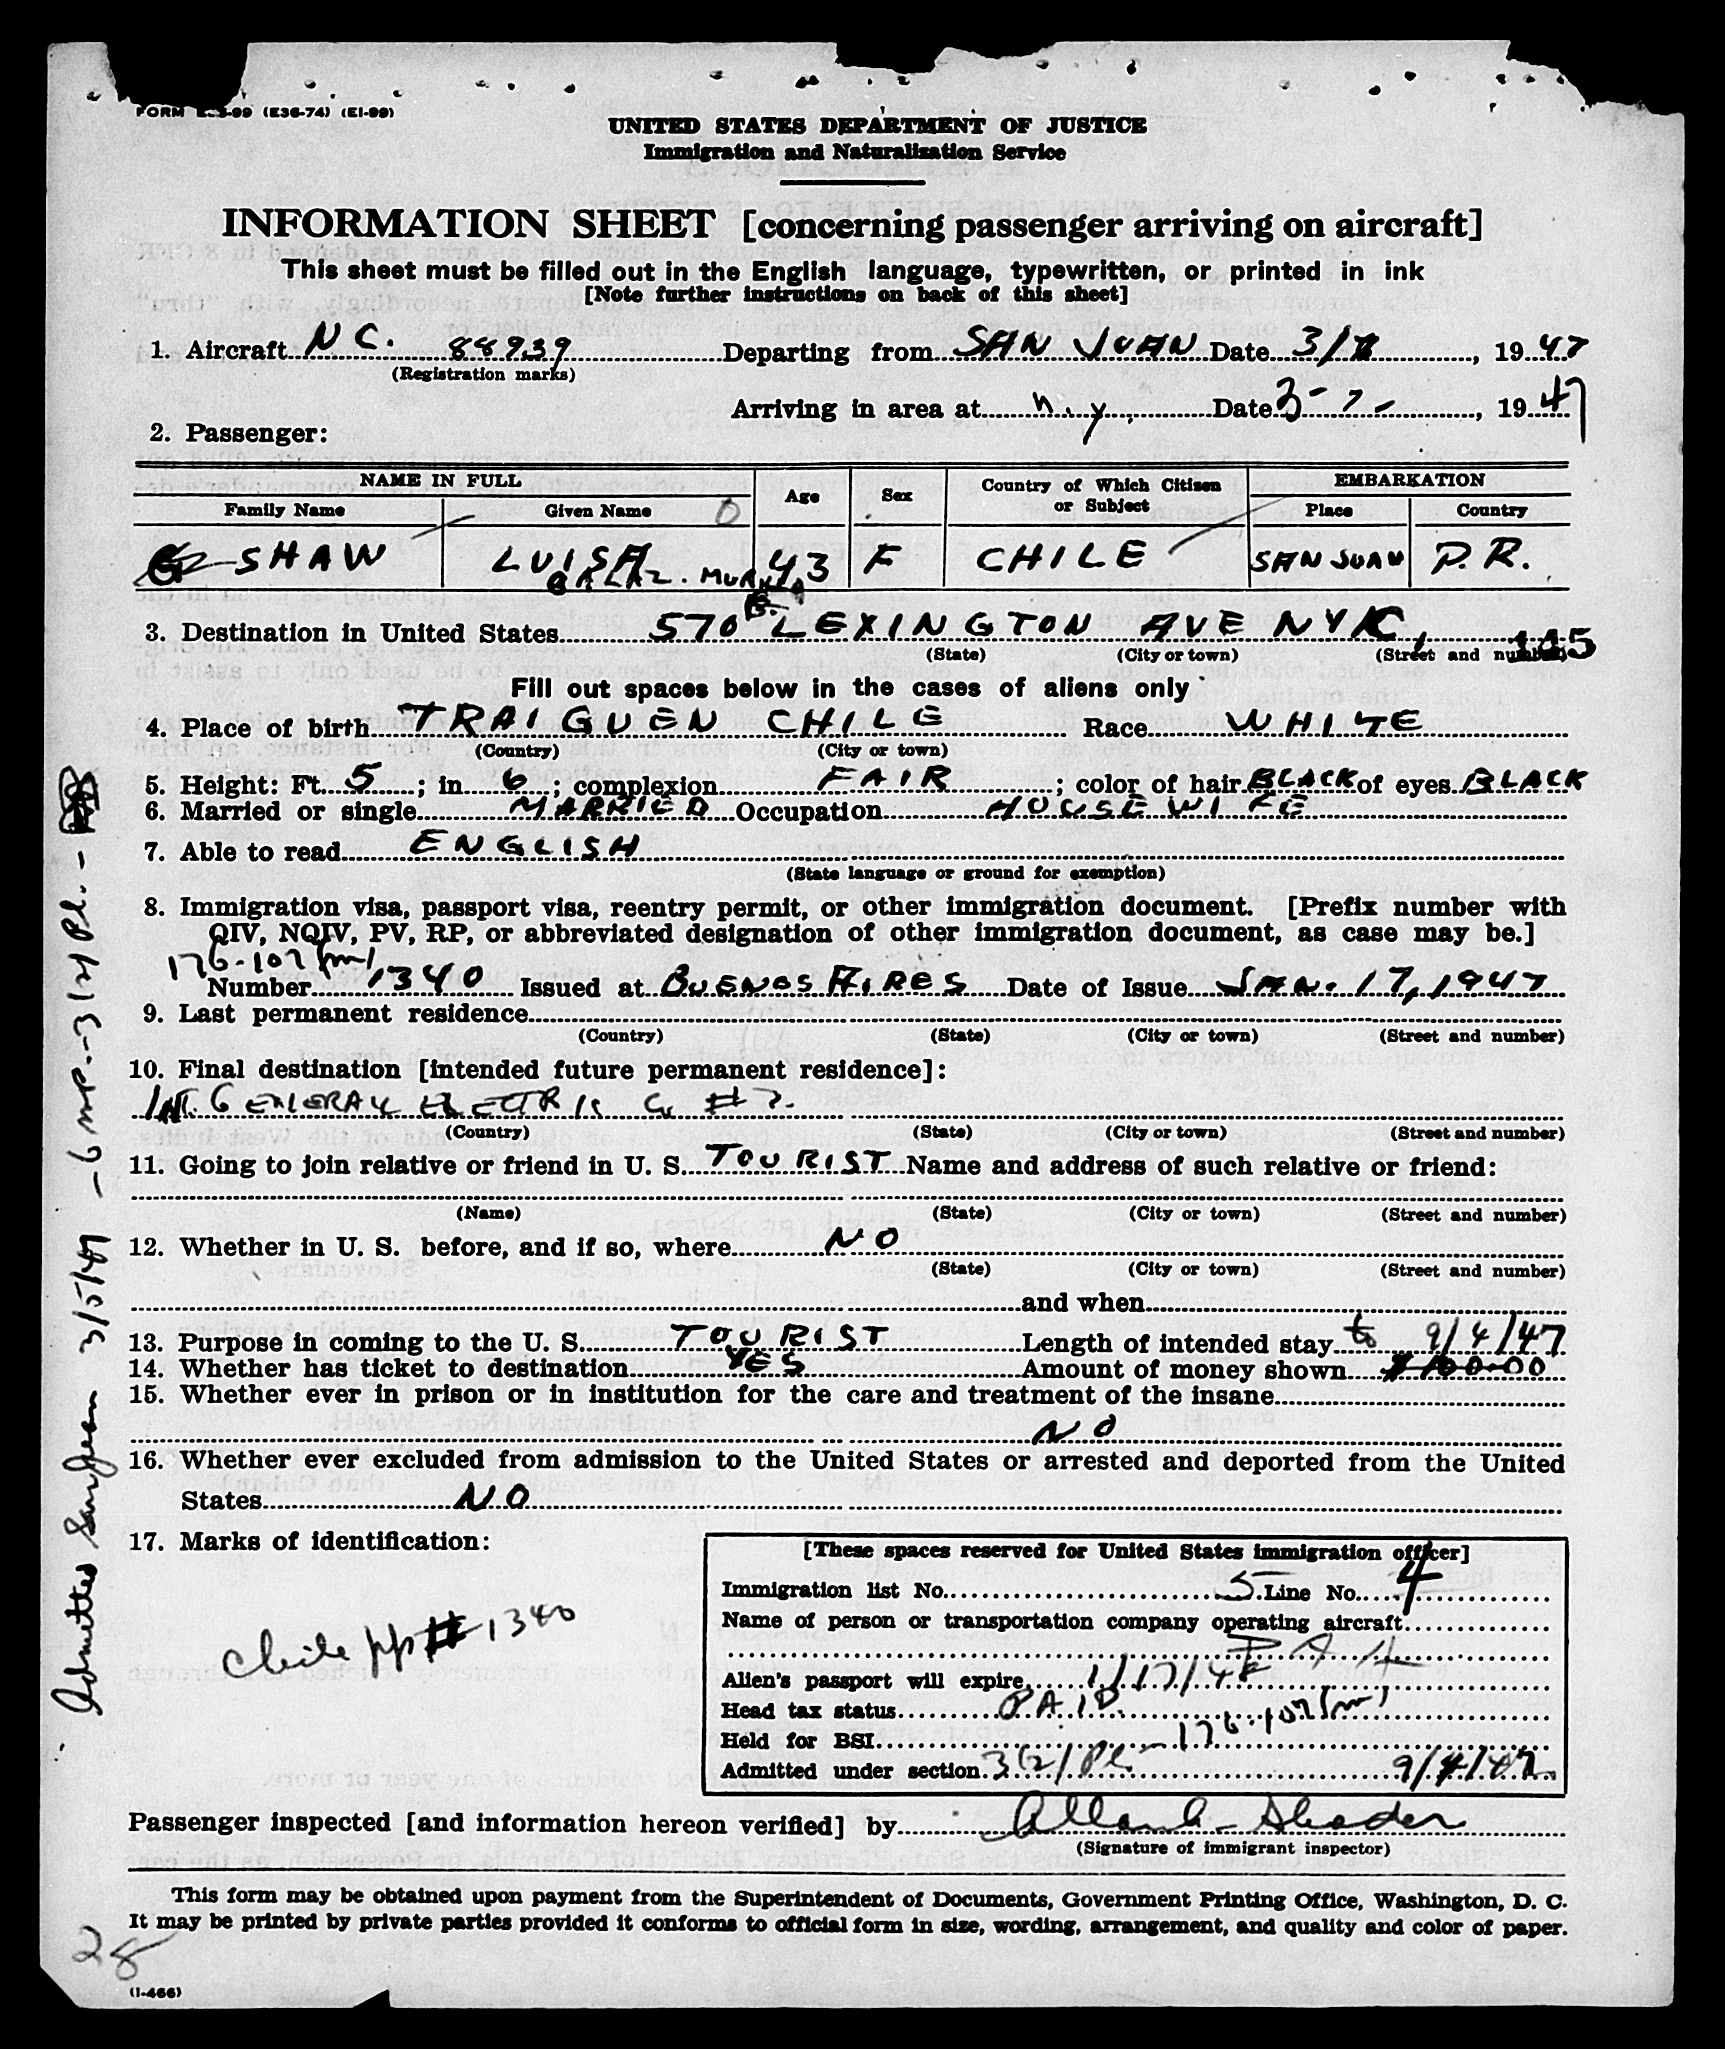 FORM -99 (E36-74) (EI-99)
UNITED STATES DEPARTMENT OF JUSTICE
Immigration and Naturalization Service
INFORMATION SHEET [concerning passenger arriving on aircraft]
This sheet must be filled out in the English language, typewritten, or printed in ink
[Note further instructions on back of this sheet]
1. Aircraft NC. 88939 Departing from SAN JUAN Date 3/ , 19 47
(Registration marks)
Arriving in area at N.Y. Date 3-7- , 19 47
2. Passenger:
NAME IN FULL Age Sex Country of Which Citizen or Subject EMBARKATION
Family Name Given Name Place Country
SHAW LUISA 43 F CHILE SAN JUAN P.R.
3. Destination in United States 570 LEXINGTON AVE NYC,
(State) (City or town) (Street and number)
Fill out spaces below in the cases of aliens only
4. Place of birth TRAIGUEN CHILE Race WHITE
(Country) (City or town)
5. Height: Ft. 5 ; in. 6 ; complexion FAIR ; color of hair BLACK of eyes BLACK
6. Married or single MARRIED Occupation HOUSEWIFE
7. Able to read ENGLISH
(State language or ground for exemption)
8. Immigration visa, passport visa, reentry permit, or other immigration document. [Prefix number with
QIV, NQIV, PV, RP, or abbreviated designation of other immigration document, as case may be.]
176-107
Number 1340 Issued at BUENOS AIRES Date of Issue JAN. 17, 1947
9. Last permanent residence
(Country) (State) (City or town) (Street and number)
10. Final destination [intended future permanent residence]:
INT. GENERAL ELECTRIC Co
(Country) (State) (City or town) (Street and number)
11. Going to join relative or friend in U. S. TOURIST Name and address of such relative or friend:
(Name) (State) (City or town) (Street and number)
12. Whether in U. S. before, and if so, where NO
(State) (City or town) (Street and number)
and when
13. Purpose in coming to the U. S. TOURIST Length of intended stay to 9/4/47
14. Whether has ticket to destination YES Amount of money shown $100.00
15. Whether ever in prison or in institution for the care and treatment of the insane
NO
16. Whether ever excluded from admission to the United States or arrested and deported from the United
States NO
17. Marks of identification:
Chile pp# 1340
[These spaces reserved for United States immigration officer]
Immigration list No. 5 Line No. 4
Name of person or transportation company operating aircraft
P A A
Alien's passport will expire 1/17/48
Head tax status PAID.
Held for BSI 176-107
Admitted under section 3(2) Pl. 9/4/47
Passenger inspected [and information hereon verified] by
(Signature of immigrant inspector)
This form may be obtained upon payment from the Superintendent of Documents, Government Printing Office, Washington, D. C.
It may be printed by private parties provided it conforms to official form in size, wording, arrangement, and quality and color of paper.
28
(I-466)
Admitted San Juan 3/5/47 - 6 mp. - 3(2) Pl. -